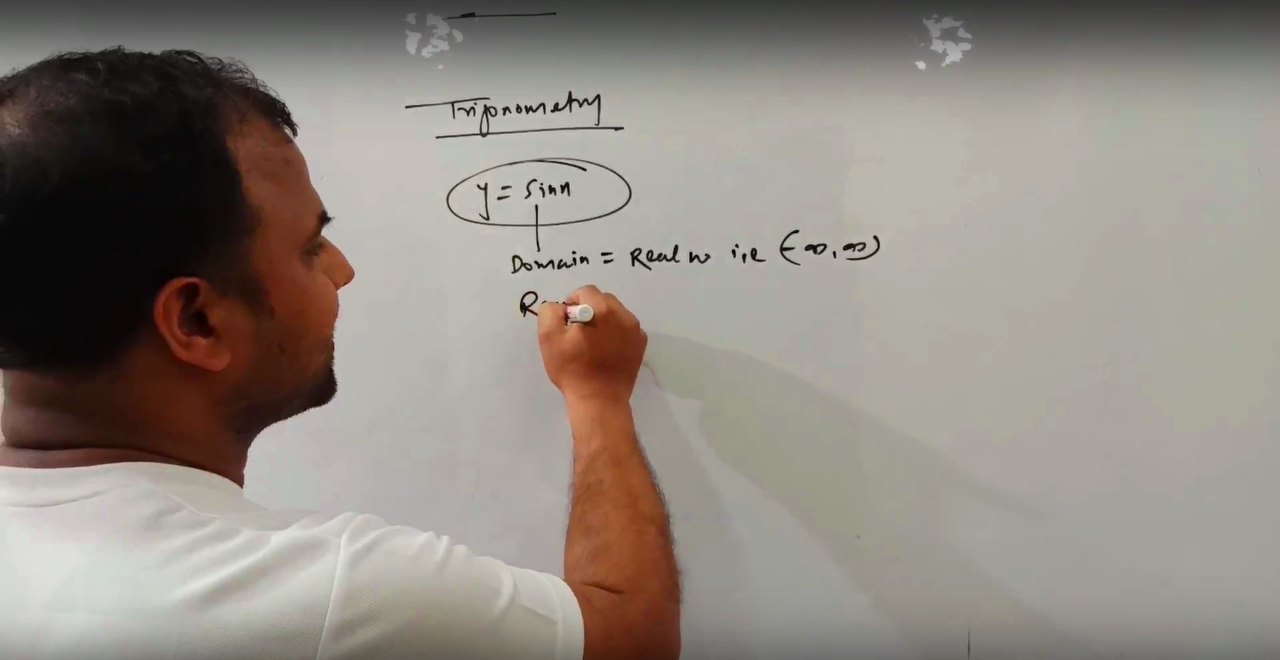 Trigonometry
y = sinx
Domain = Real no i,e (-∞, ∞)